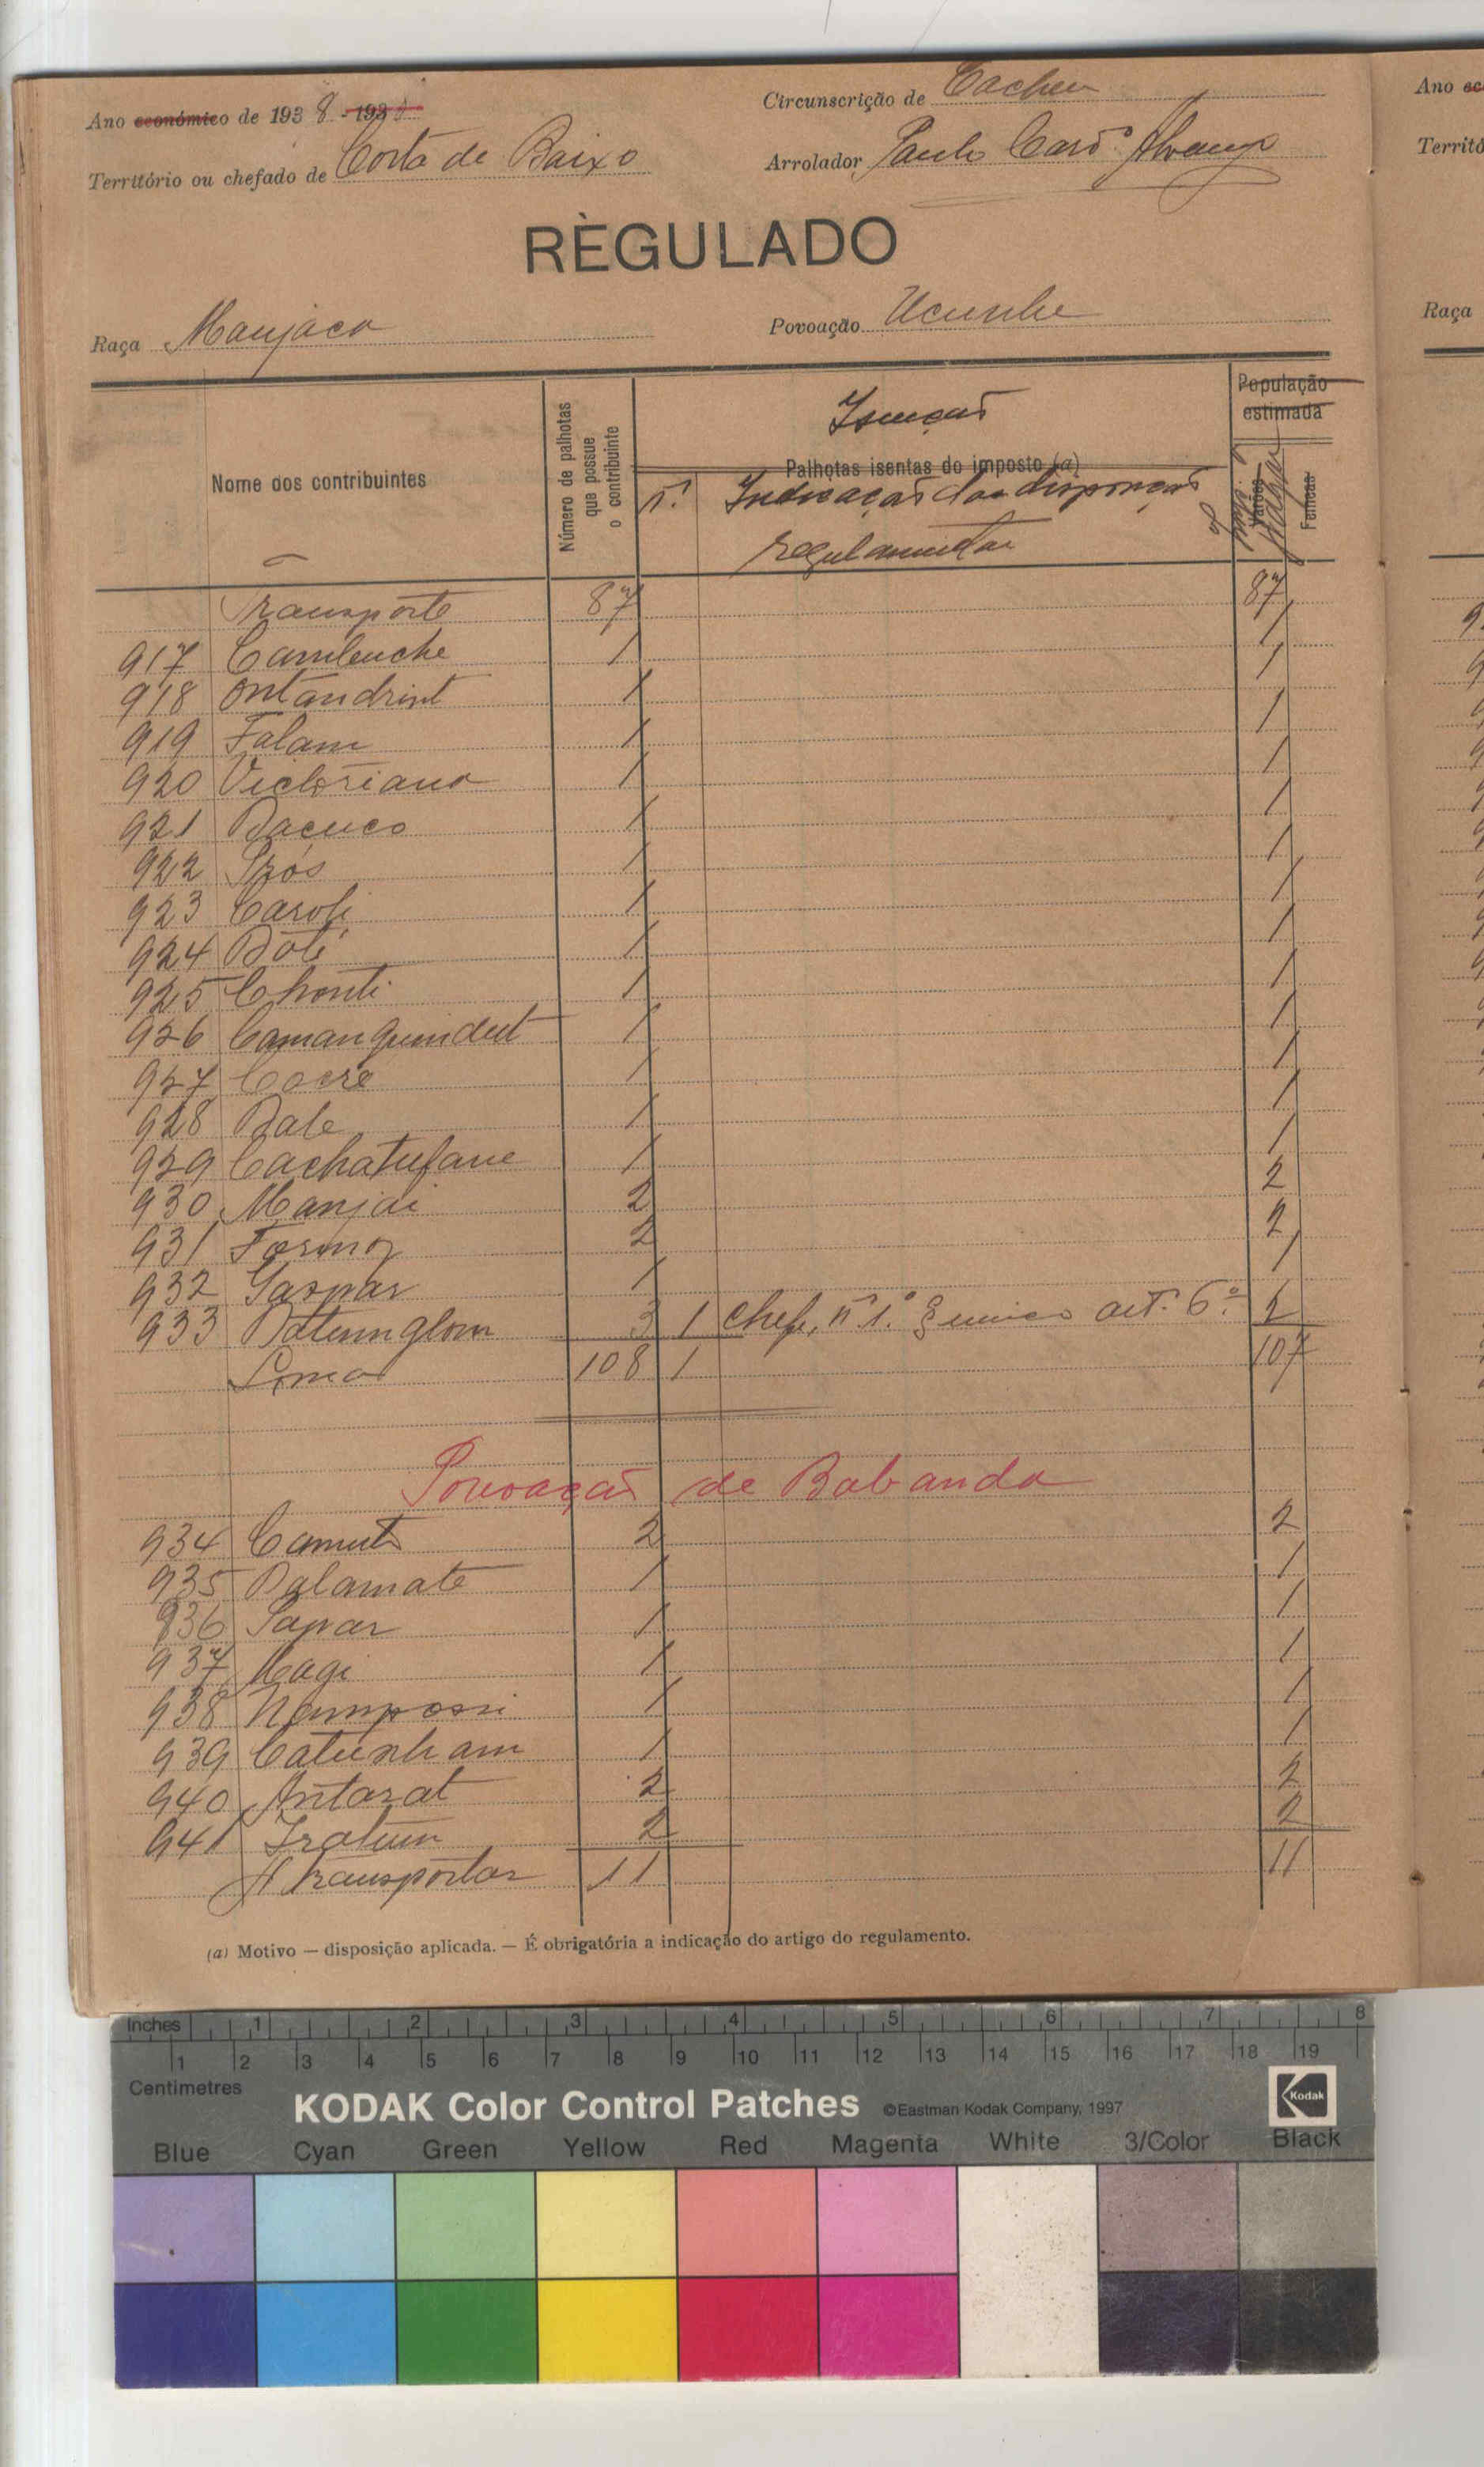 Ano económico de 1938-193
Circunscrição de Cacheu
Território ou chefado de Costa de Baixo
Arrolador Paulo
REGULADO
Raça Manjaca
Povoação Ucunhe
Nome dos contribuintes
Número de palhotas que possue o contribuinte
Isenções
Palhotas isentas do imposto (a)
n.º Indicação das disposições regulamentares
População estimada
Varões
Fêmeas
Transporte 87 87
917 Cambenche 1 1
918 Ontandrint 1 1
919 Falam 1 1
920 Victoriano 1 1
921 Bacuco 1 1
922 Prós 1 1
923 Caroli 1 1
924 Boli 1 1
925 Chonti 1 1
926 Camanquindut 1 1
927 Cocre 1 1
928 Bale 1 1
929 Cachatufane 1 1
930 Manjai 2 2
931 2 2
932 Gaspar 1 1
933 3 1 Chefe, n.º 1.º § unico art. 6.º 2
Soma 108 1 107
Povoação de Babanda
934 Camute 2 2
935 Balamate 1 1
936 Papar 1 1
937 Cagi 1 1
938 Nampossi 1 1
939 Catunham 1 1
940 Antarat 2 2
941 2 2
A transportar 11 11
(a) Motivo — disposição aplicada. — É obrigatória a indicação do artigo do regulamento.
Ano
Territó
Raça
Inches 1 2 3 4 5 6 7 8
1 2 3 4 5 6 7 8 9 10 11 12 13 14 15 16 17 18 19
Centimetres
KODAK Color Control Patches ©Eastman Kodak Company, 1997 Kodak
Blue Cyan Green Yellow Red Magenta White 3/Color Black